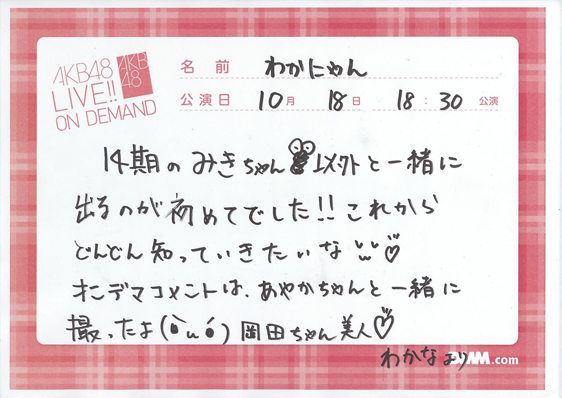 AKB48
LIVE!!
ON DEMAND
AKB
48
名前 わかにゃん
公演日 10月 18日 18:30 公演
14期のみきちゃん以外と一緒に
出るのが初めてでした!!これから
どんどん知っていきたいな♡
オンデマコメントは、あやかちゃんと一緒に
撮ったよ(òωó)岡田ちゃん美人♡
わかなより
DMM.com